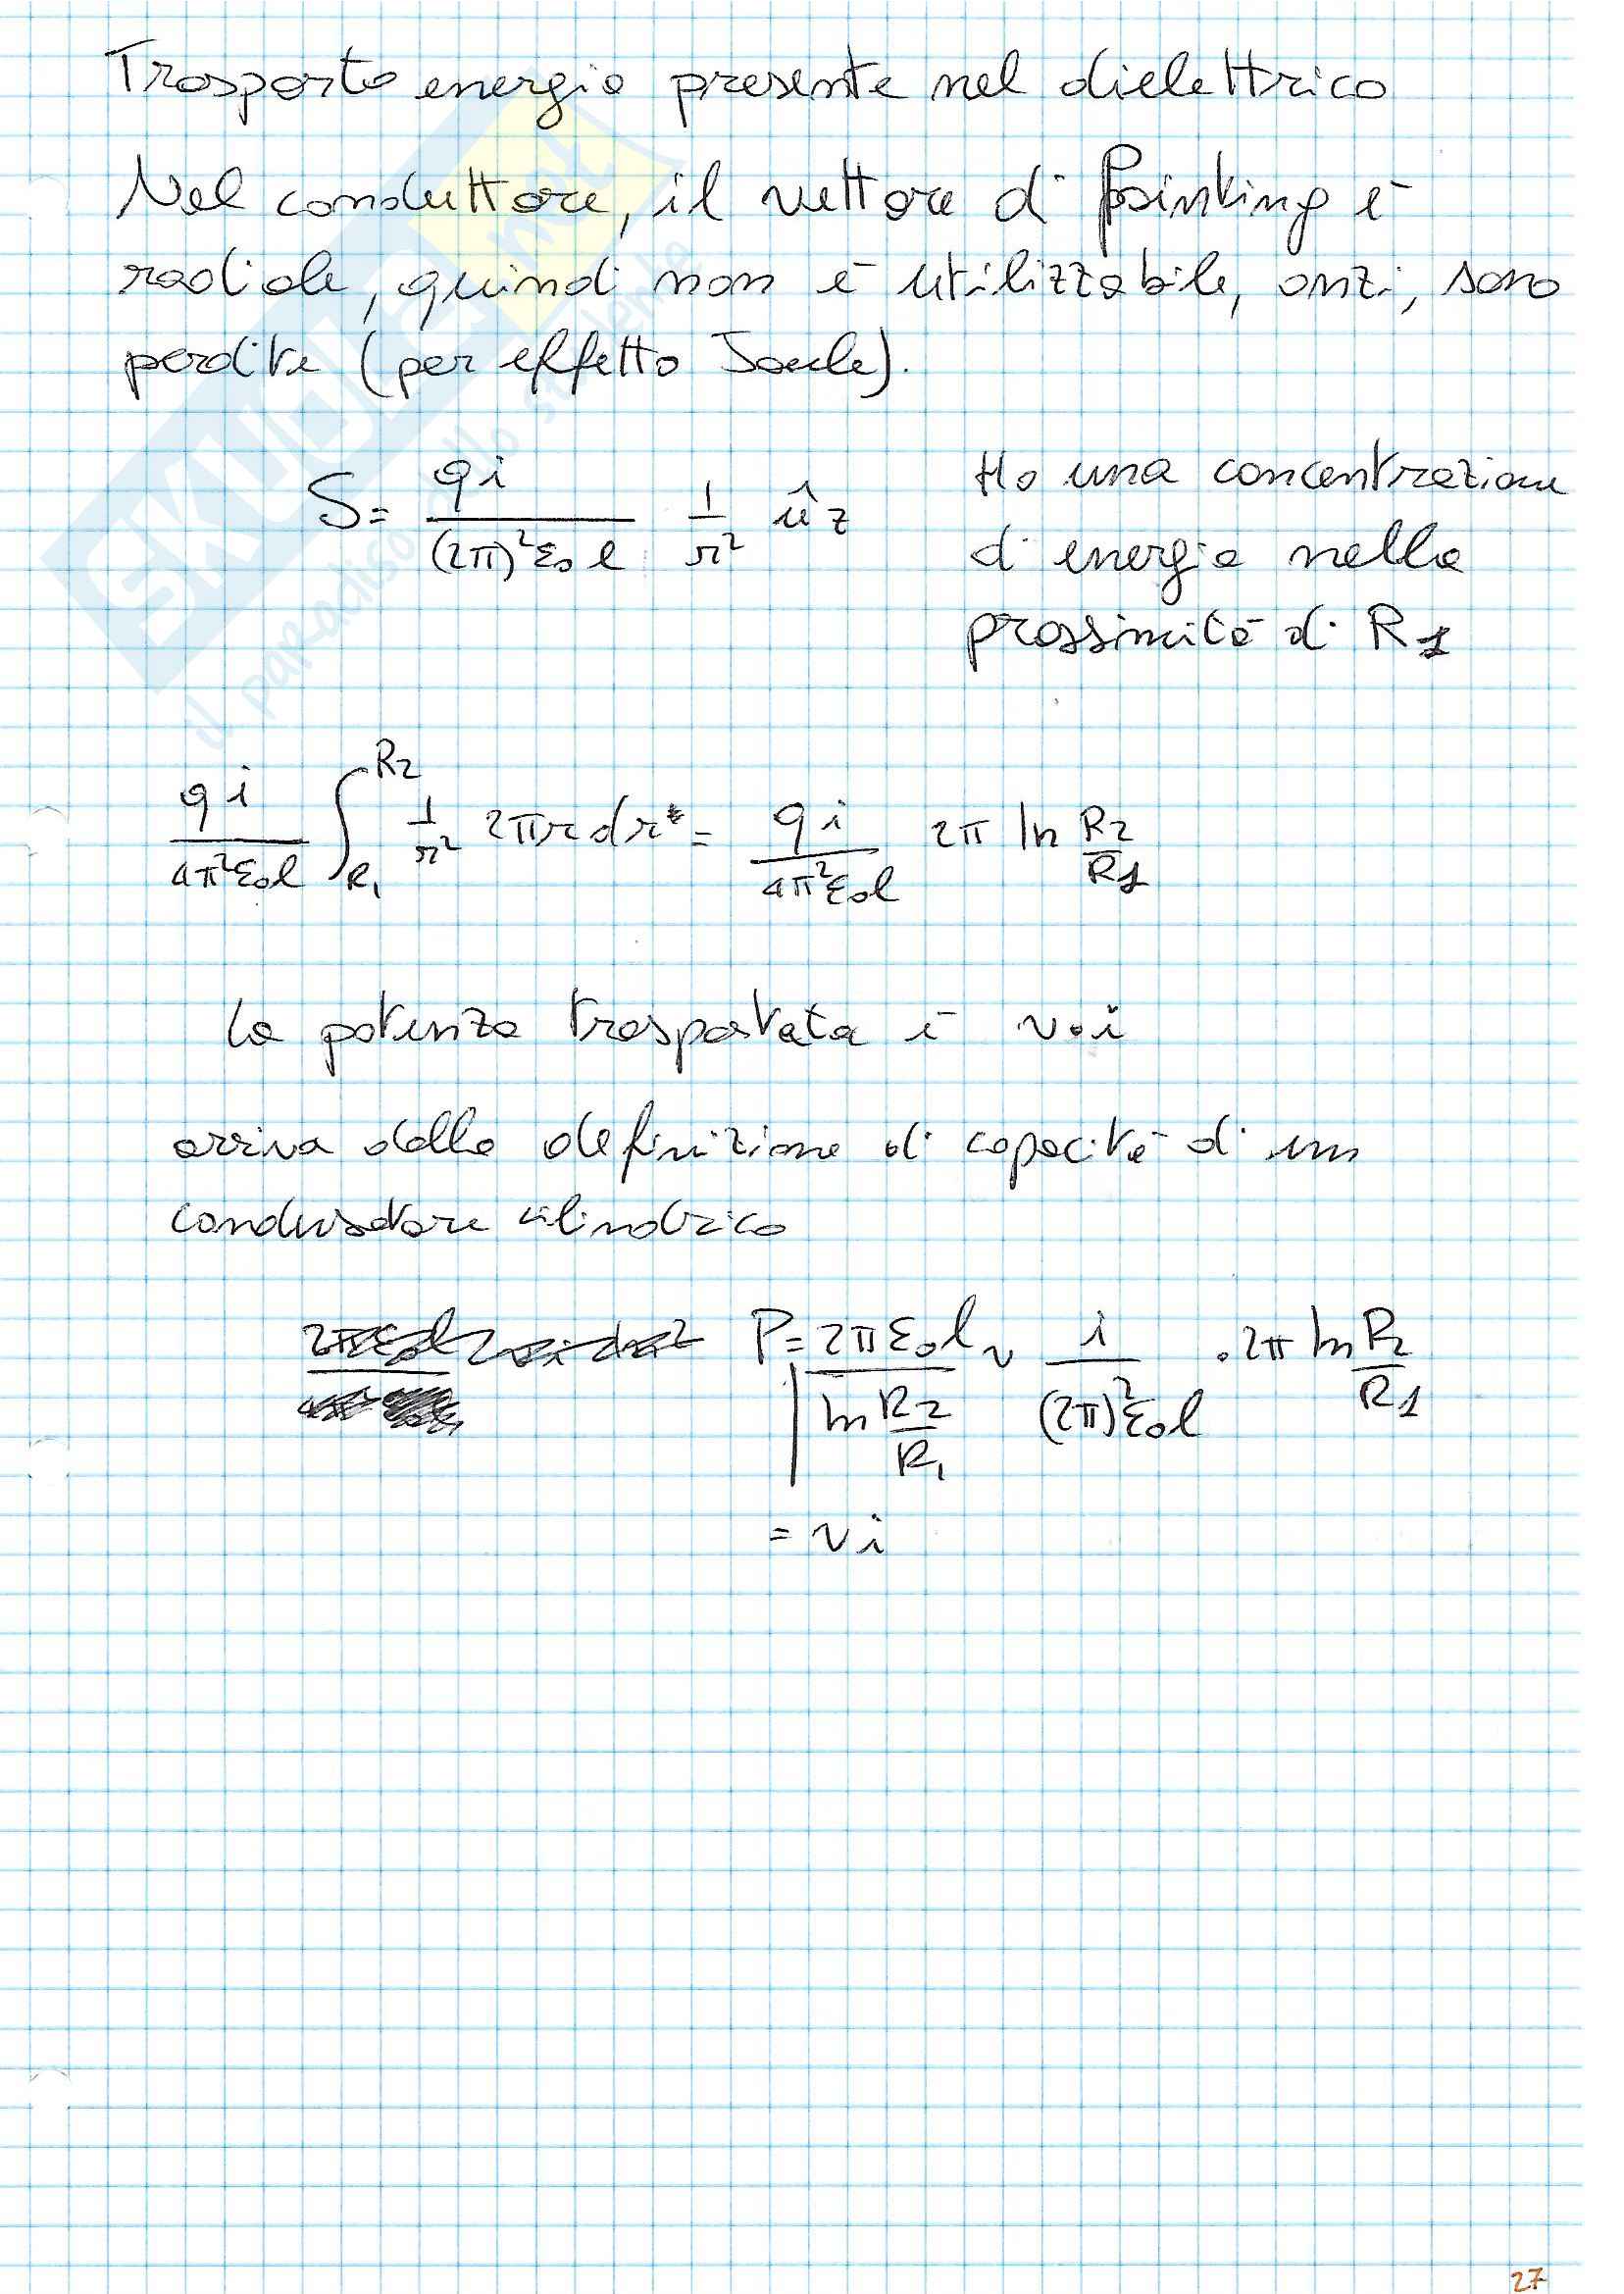 Trasporto energia presente nel dielettrico
Nel conduttore, il vettore di Pointing è
radiale, quindi non è utilizzabile, anzi, sono
perdite (per effetto Joule).
S = qi / ((2π)² ε₀ l) 1/r² û_z
Ho una concentrazione
di energia nella
prossimità di R1
qi / (4π² ε₀ l) ∫_{R1}^{R2} 1/r² 2πr dr = qi / (4π² ε₀ l) 2π ln R2/R1
la potenza trasportata è v·i
arriva dalla definizione di capacità di un
condensatore cilindrico
P = 2π ε₀ l / (ln R2/R1) v i / ((2π)² ε₀ l) · 2π ln R2/R1
= vi
27
SKUOLA.net
il paradiso dello studente